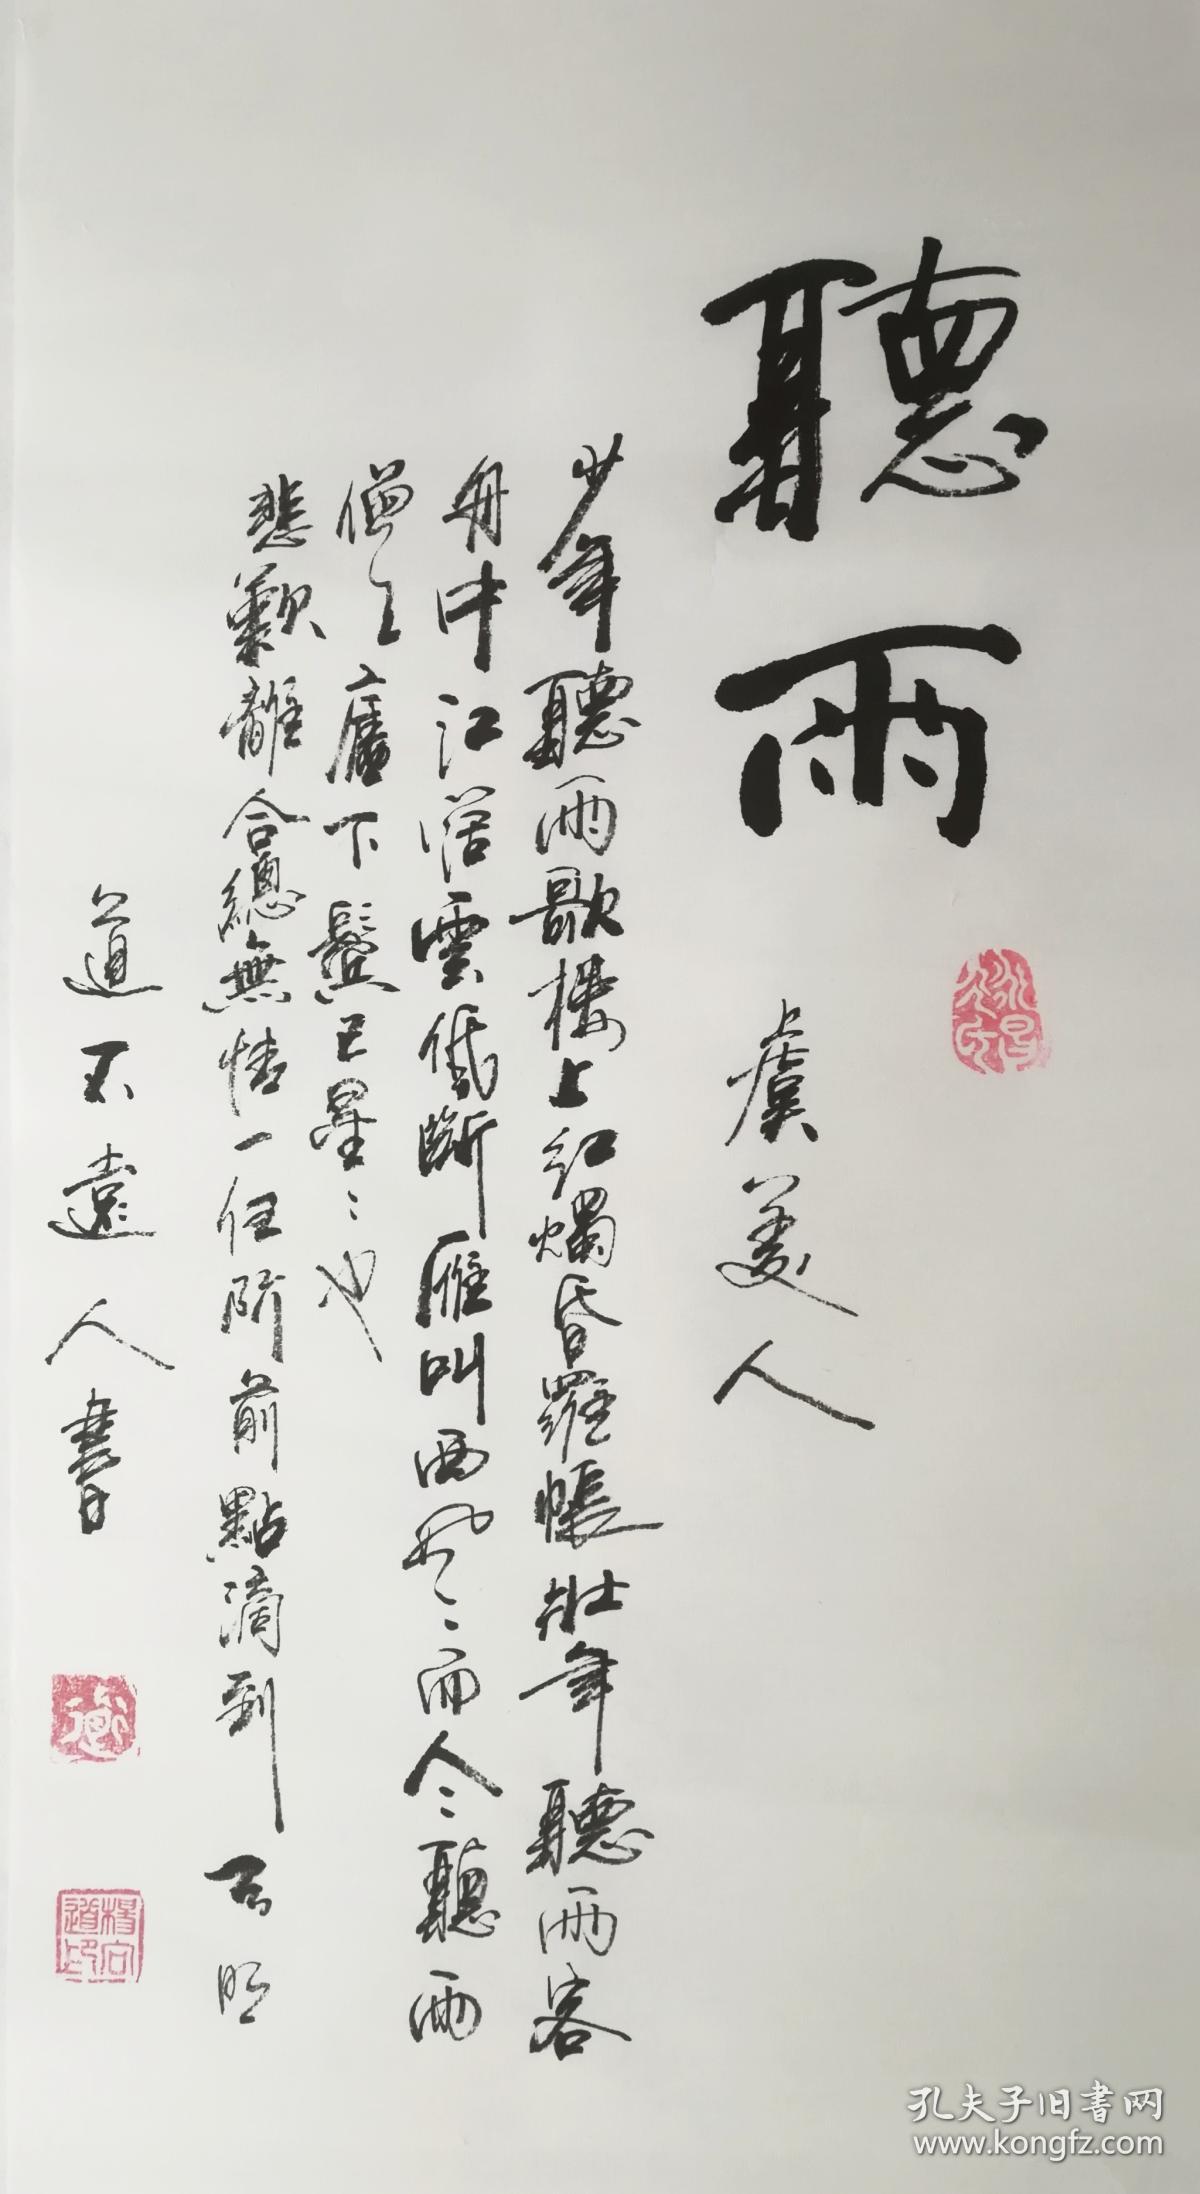 聽雨
虞美人
少年聽雨歌樓上紅燭昏羅帳壯年聽雨客
舟中江闊雲低斷雁叫西風而今聽雨
僧之廬下鬢已星〻也
悲歡離合總無情一任阶前點滴到天明
道不遠人書
楊向道印
孔夫子旧书网
www.kongfz.com